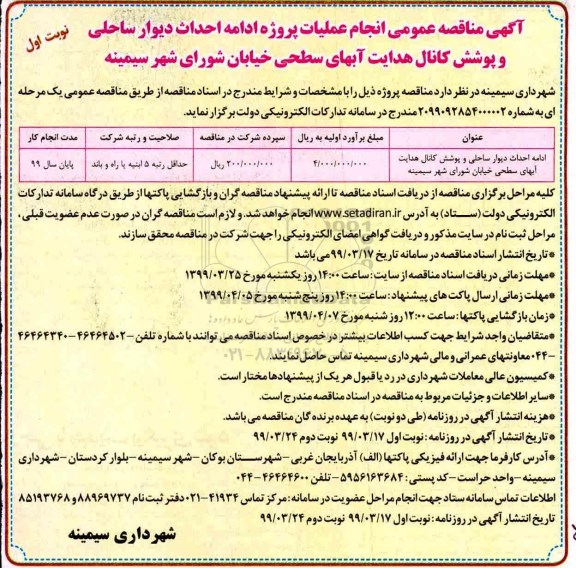 آگهی مناقصه عمومی انجام عملیات پروژه ادامه احداث دیوار ساحلی
و پوشش کانال هدایت آبهای سطحی خیابان شورای شهر سیمینه
نوبت اول
شهرداری سیمینه در نظر دارد مناقصه پروژه ذیل را با مشخصات و شرایط مندرج در اسناد مناقصه از طریق مناقصه عمومی یک مرحله
ای به شماره ۲۰۹۹۰۹۲۸۵۴۰۰۰۰۰۲ مندرج در سامانه تدارکات الکترونیکی دولت برگزار نماید.
عنوان
مبلغ برآورد اولیه به ریال
سپرده شرکت در مناقصه
صلاحیت و رتبه شرکت
مدت انجام کار
ادامه احداث دیوار ساحلی و پوشش کانال هدایت
آبهای سطحی خیابان شورای شهر سیمینه
۴/۰۰۰/۰۰۰/۰۰۰
۲۰۰/۰۰۰/۰۰۰ ریال
حداقل رتبه ۵ ابنیه یا راه و باند
پایان سال ۹۹
کلیه مراحل برگزاری مناقصه از دریافت اسناد مناقصه تا ارائه پیشنهاد مناقصه گران و بازگشایی پاکتها از طریق درگاه سامانه تدارکات
الکترونیکی دولت (ستاد) به آدرس www.setadiran.ir انجام خواهد شد. و لازم است مناقصه گران در صورت عدم عضویت قبلی،
مراحل ثبت نام در سایت مذکور و دریافت گواهی امضای الکترونیکی را جهت شرکت در مناقصه محقق سازند.
*تاریخ انتشار اسناد مناقصه در سامانه تاریخ ۹۹/۰۳/۱۷ می باشد
*مهلت زمانی دریافت اسناد مناقصه از سایت: ساعت ۱۴:۰۰ روز یکشنبه مورخ ۱۳۹۹/۰۳/۲۵
*مهلت زمانی ارسال پاکت های پیشنهاد: ساعت ۱۴:۰۰ روز پنج شنبه مورخ ۱۳۹۹/۰۴/۰۵
*زمان بازگشایی پاکتها: ساعت ۱۲:۰۰ روز شنبه مورخ ۱۳۹۹/۰۴/۰۷
*متقاضیان واجد شرایط جهت کسب اطلاعات بیشتر در خصوص اسناد مناقصه می توانند با شماره تلفن ۴۶۴۶۴۵۰۲- ۴۶۴۶۴۳۴۰
-۰۴۴ معاونتهای عمرانی و مالی شهرداری سیمینه تماس حاصل نمایند.
*کمیسیون عالی معاملات شهرداری در رد یا قبول هر یک از پیشنهادها مختار است.
*سایر اطلاعات و جزئیات مربوط به مناقصه در اسناد مناقصه مندرج است.
*هزینه انتشار آگهی در روزنامه (طی دو نوبت) به عهده برنده گان مناقصه می باشد.
*تاریخ انتشار آگهی در روزنامه: نوبت اول ۹۹/۰۳/۱۷ نوبت دوم ۹۹/۰۳/۲۴
*آدرس کارفرما جهت ارائه فیزیکی پاکتها (الف) آذربایجان غربی- شهرستان بوکان - شهر سیمینه - بلوار کردستان - شهرداری
سیمینه - واحد حراست - کد پستی: ۵۹۵۶۱۶۳۶۸۴ - تلفن ۴۶۴۶۴۶۰۰-۰۴۴
اطلاعات تماس سامانه ستاد جهت انجام مراحل عضویت در سامانه: مرکز تماس ۴۱۹۳۴-۰۲۱ دفتر ثبت نام ۸۸۹۶۹۷۳۷ و ۸۵۱۹۳۷۶۸
تاریخ انتشار آگهی در روزنامه: نوبت اول ۹۹/۰۳/۱۷ نوبت دوم ۹۹/۰۳/۲۴
شهرداری سیمینه